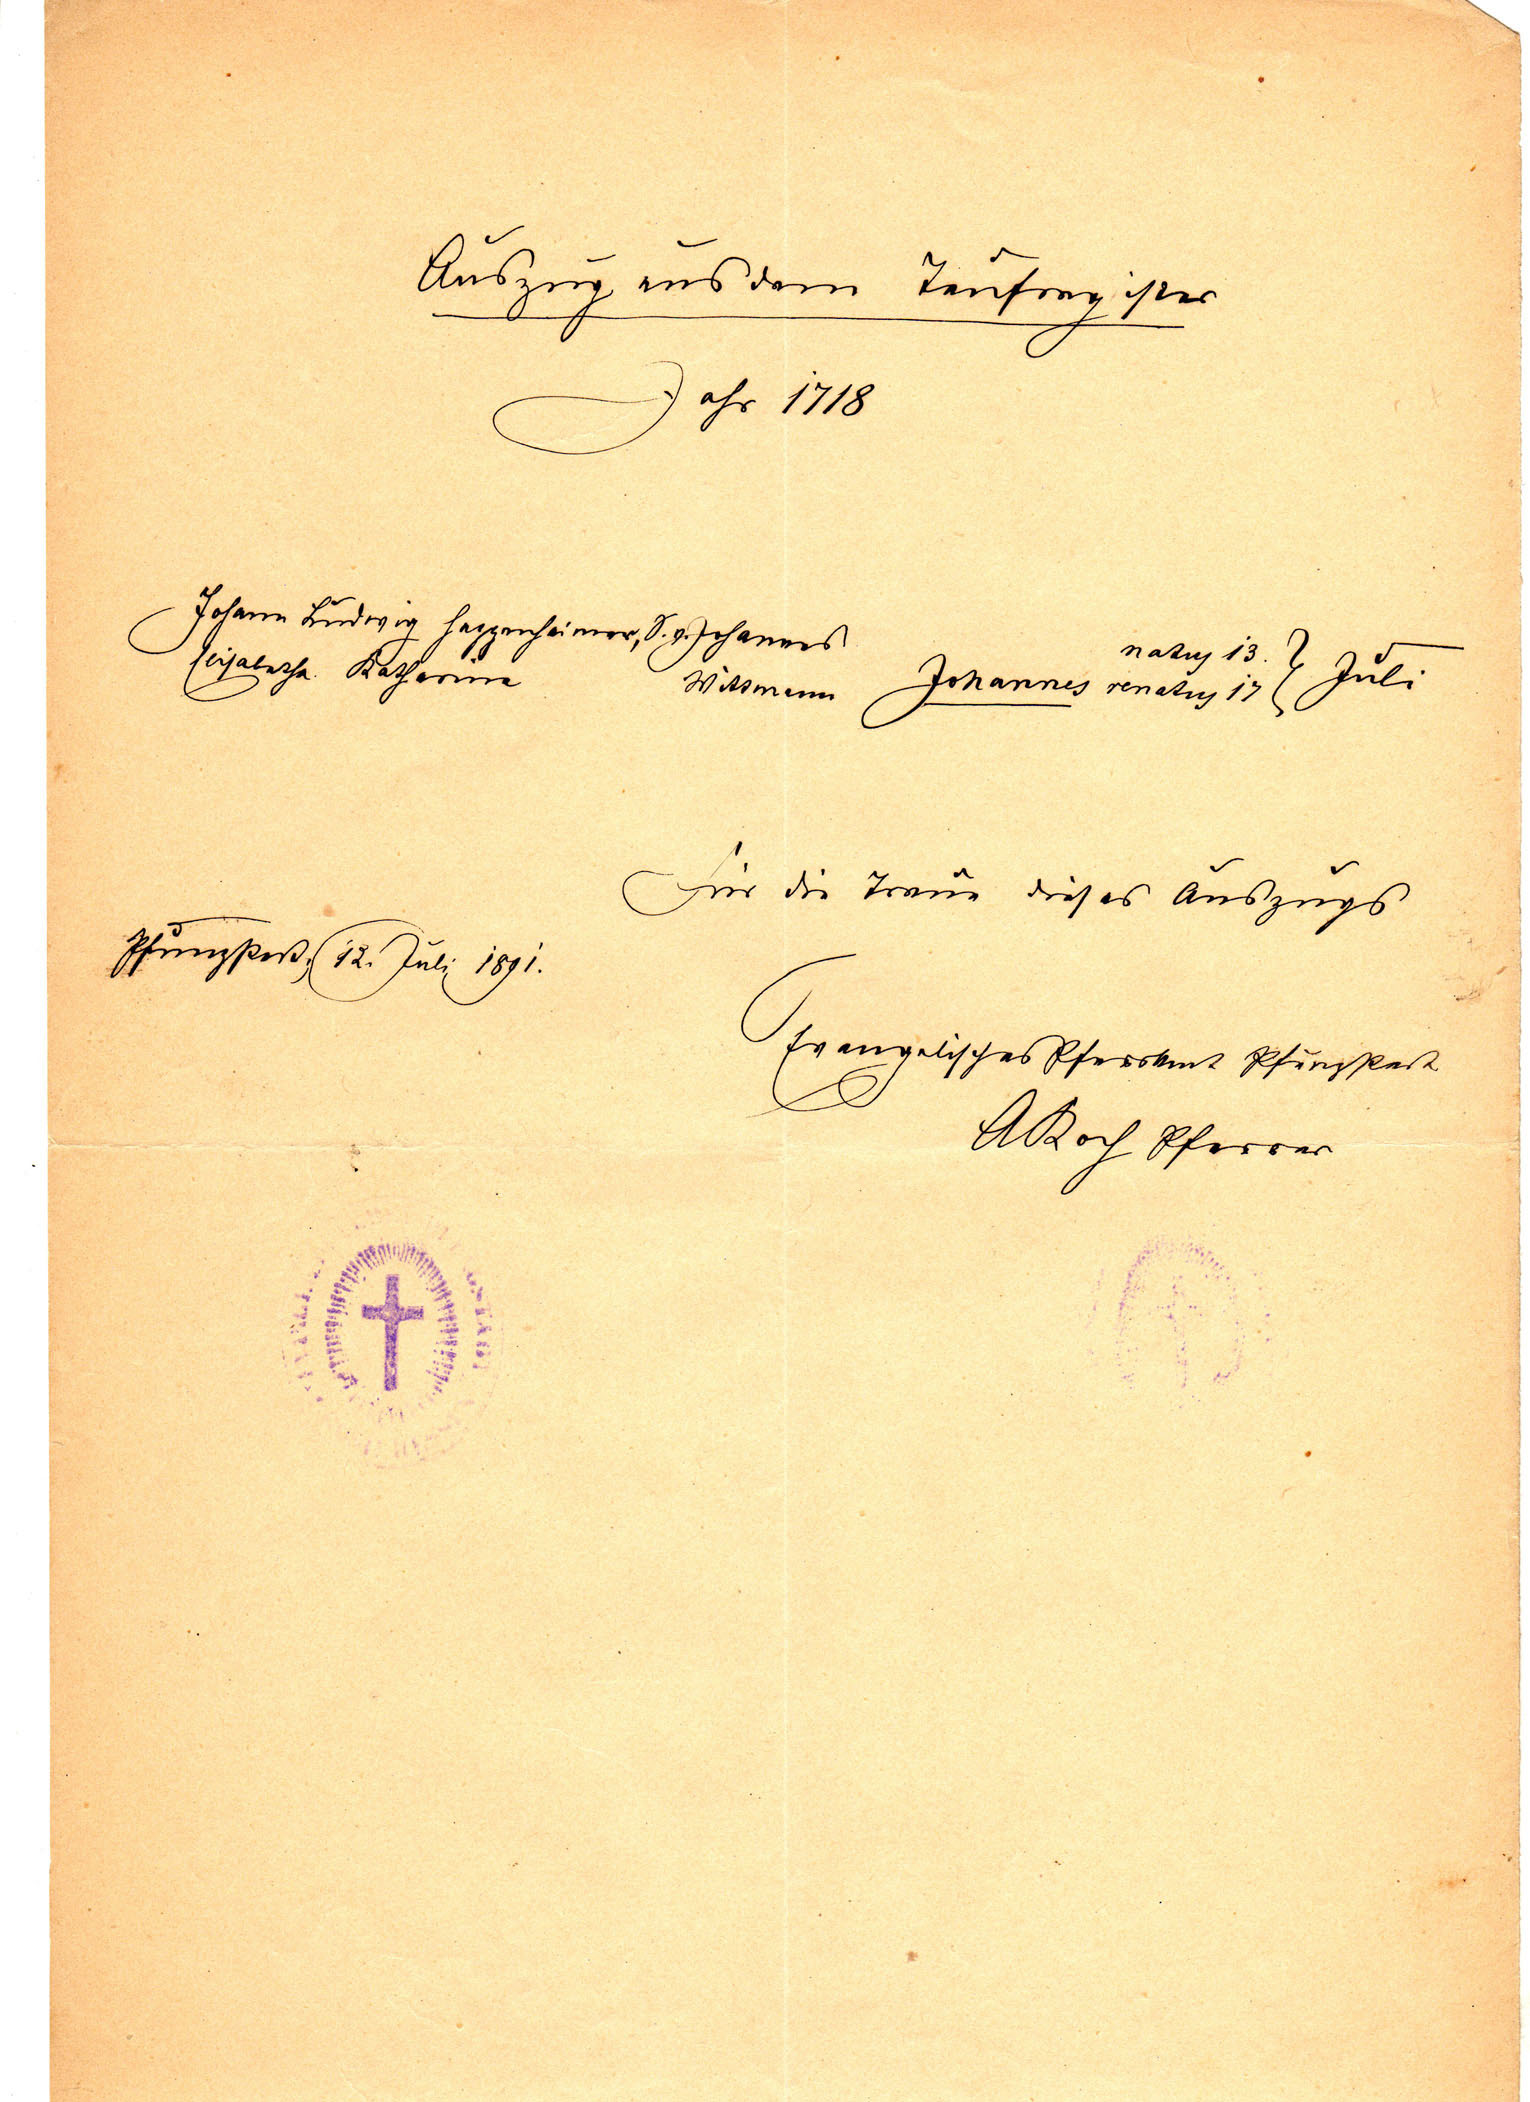 Auszug aus dem Taufregister
Jahr 1718
Johann Ludwig Heppenheimer, S. v. Johannes
Elisabetha Katharina Wittmann
Johannes natus 13.
renatus 17
Juli
Für die Treue dieses Auszugs
Pfungstadt, 12. Juli 1891.
Evangelisches Pfarramt Pfungstadt
A Koch Pfarrer